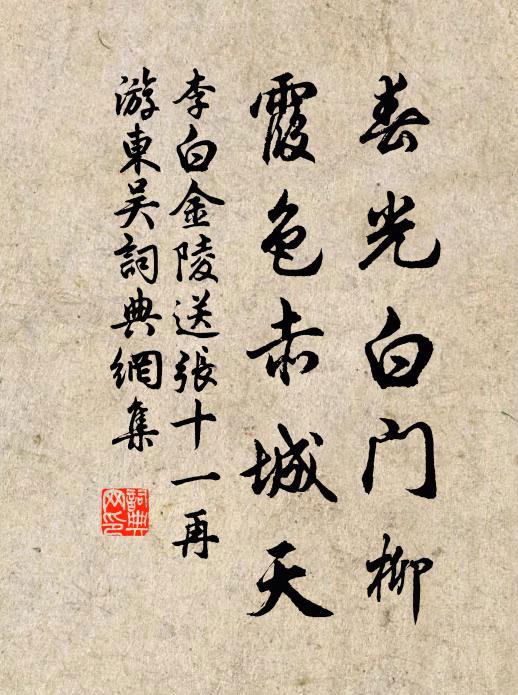 春光白門柳
霞色赤城天
李白金陵送張十一再
游東吴詞典網集
詞典
网印